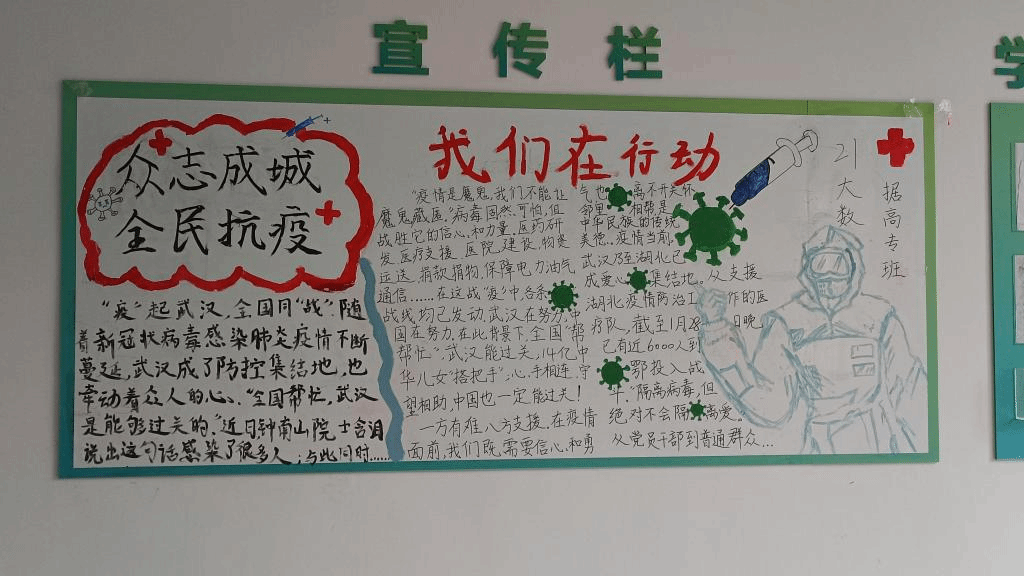 宣传栏
学
众志成城
全民抗疫
"疫"起武汉,全国同"战":随
着新冠状病毒感染肺炎疫情不断
蔓延,武汉成了防控集结地,也
牵动着众人的心、"全国帮忙,武汉
是能够过关的。"近日钟南山院士含泪
说出这句话感染了很多人;与此同时……
我们在行动
"疫情是魔鬼,我们不能让
魔鬼藏匿。"病毒固然可怕,但
战胜它的信心和力量.医药研
发.医疗支援.医院建设,物资
运送.捐款捐物.保障电力油气
通信……在这战"疫"中,各条
战线均已发动.武汉在努力,中
国在努力.在此背景下,全国"帮
帮忙",武汉能过关,14亿中
华儿女"搭把手",心手相连,守
望相助,中国也一定能过关!
一方有难八方支援.在疫情
面前,我们既需要信心和勇
气也 离不开关怀
邻里 相帮是
中华民族的传统
美德..疫情当前.
武汉乃至湖北已
成爱心 集结地,从支援
湖北疫情防治工 作的医
疗队,截至1月28 日晚
已有近6000人到
鄂投入战
斗."隔离病毒,但
绝对不会隔 离爱。
从党员干部到普通群众…
21
大
数
据高专班